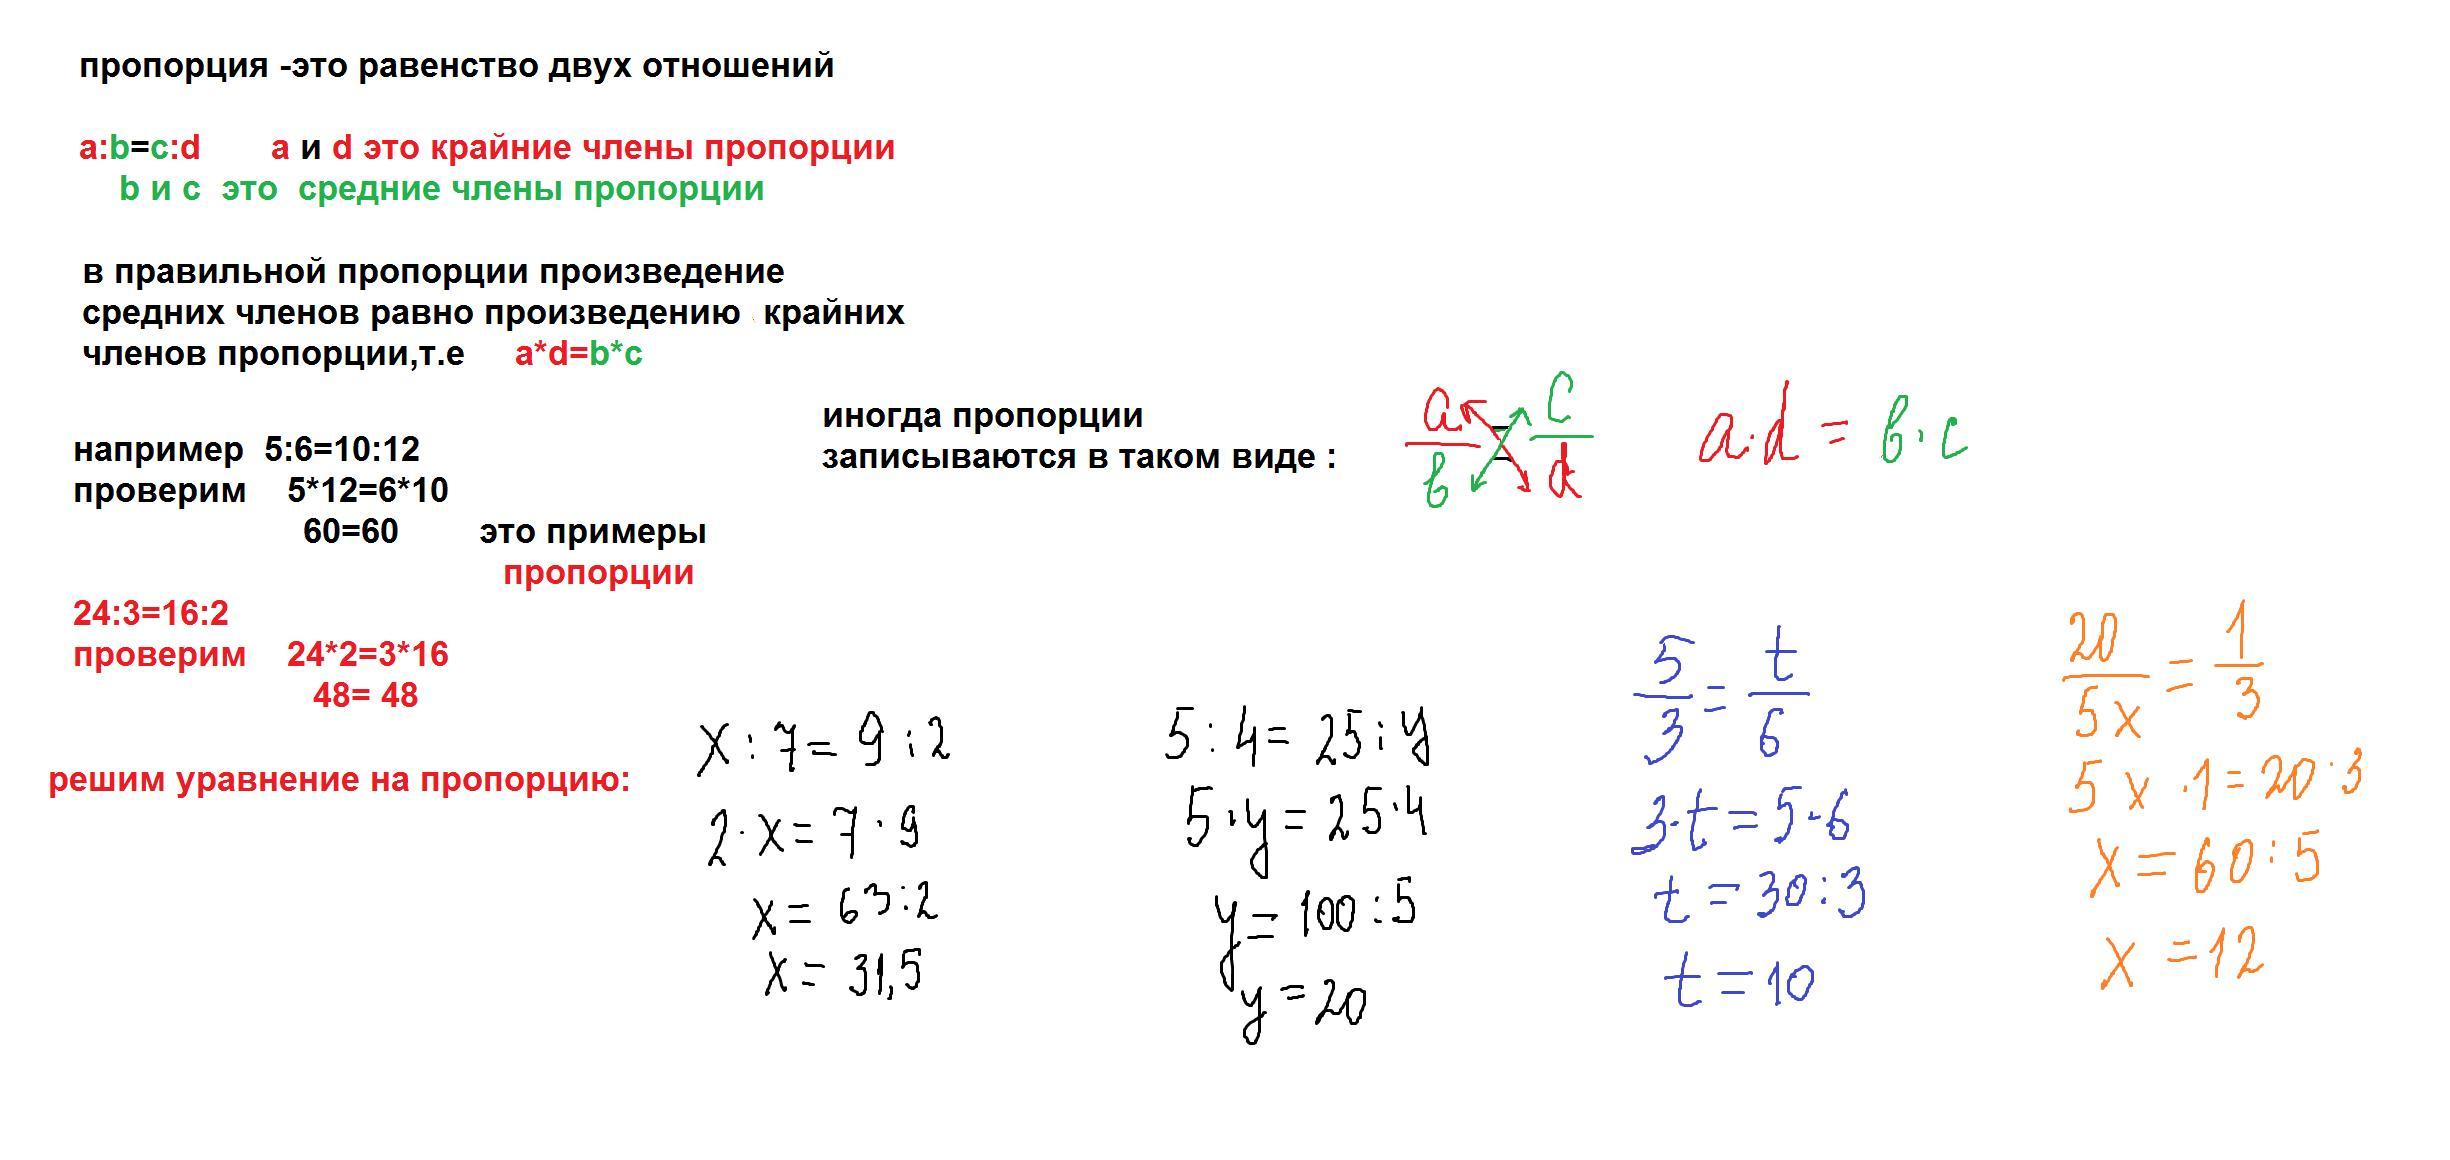 пропорция -это равенство двух отношений
a:b=c:d a и d это крайние члены пропорции
b и c это средние члены пропорции
в правильной пропорции произведение
средних членов равно произведению крайних
членов пропорции,т.е a*d=b*c
иногда пропорции
записываются в таком виде :
a/b = c/d a·d = b·c
например 5:6=10:12
проверим 5*12=6*10
60=60 это примеры
пропорции
24:3=16:2
проверим 24*2=3*16
48= 48
решим уравнение на пропорцию:
x : 7 = 9 : 2
2 · x = 7 · 9
x = 63 : 2
x = 31,5
5 : 4 = 25 : y
5 · y = 25 · 4
y = 100 : 5
y = 20
5/3 = t/6
3·t = 5·6
t = 30 : 3
t = 10
20/5x = 1/3
5x ·1 = 20·3
x = 60 : 5
x = 12